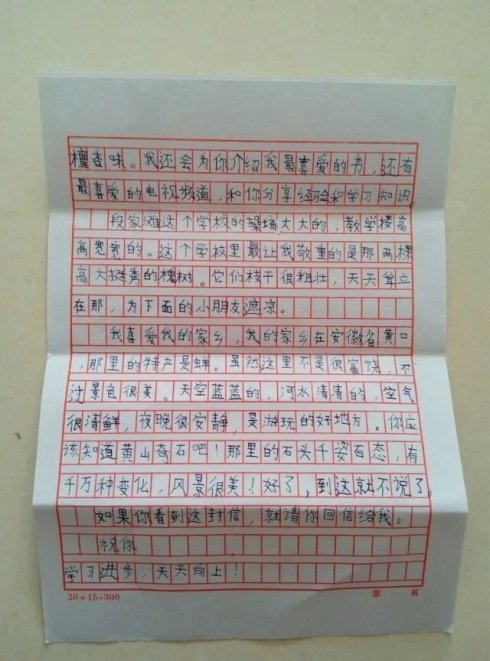 檀香味。我还会为你介绍我最喜爱的书，还有
最喜爱的电视频道，和你分享经验和学习知识。
段家滩这个学校的操场大大的，教学楼高
高宽宽的。这个学校里最让我敬重的是那两棵
高大挺秀的槐树。它们枝干很粗壮，天天耸立
在那，为下面的小朋友遮凉。
我喜爱我的家乡，我的家乡在安徽省黄口
，那里的特产是蝉。虽然这里不是很富饶，不
过景色很美。天空蓝蓝的，河水清清的，空气
很清鲜，夜晚很安静，是游玩的好地方。你应
该知道黄山奇石吧！那里的石头千姿百态，有
千万种变化，风景很美！好了，到这就不说了。
如果你看到这封信，就请你回信给我。
祝你
学习进步，天天向上！
20×15=300 第 页